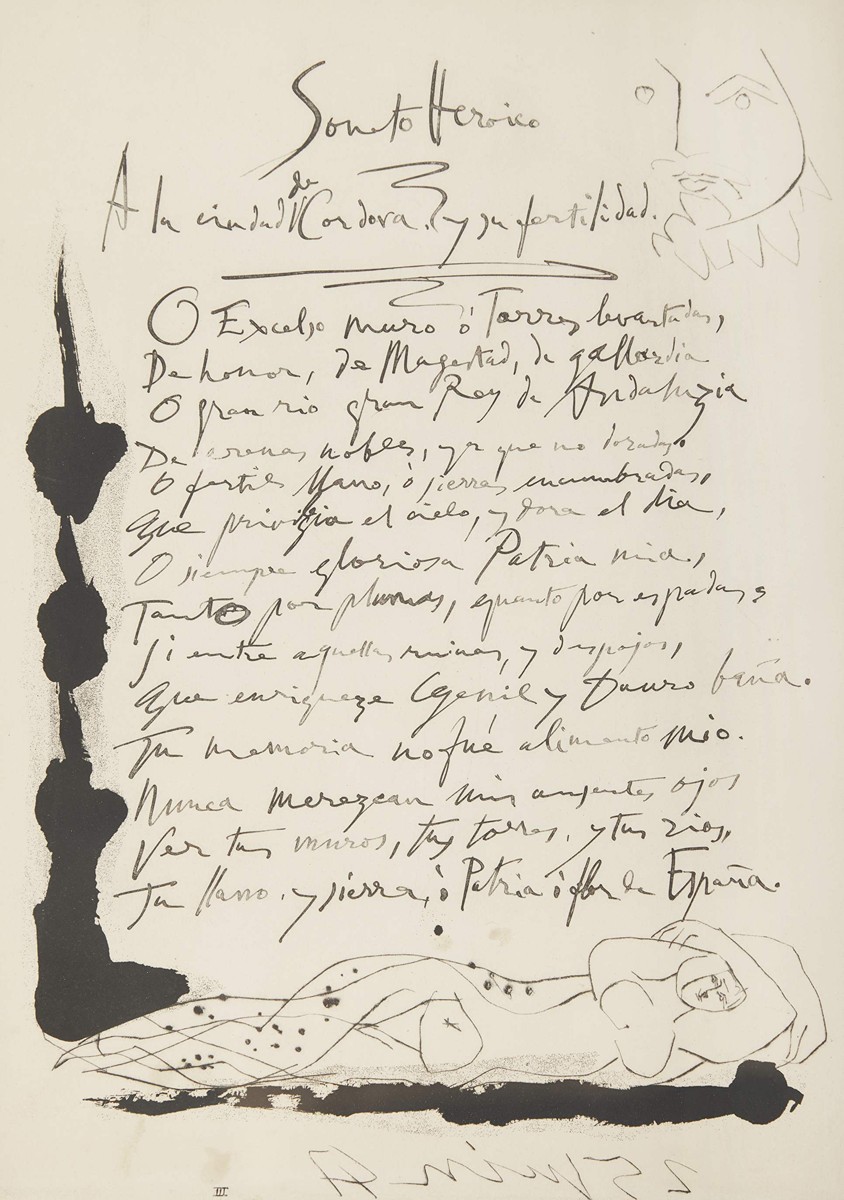 Soneto Heroico
A la ciudad de Cordova. y su fertilidad.
O Excelso muro ó Torres levantadas,
De honor, de Magestad, de gallardia
O gran rio gran Rey de Andaluzia
De arenas nobles, ya que no doradas.
O fertil llano, ò sierras encumbradas,
Que privilegia el cielo, y dora el dia,
O siempre gloriosa Patria mia,
Tanto por plumas, quanto por espadas,
Si entre aquellas ruinas, y despojos,
Que enriqueze Genil y Dauro baña.
Tu memoria no fué alimento mio.
Nunca merezcan mis ausentes ojos
Ver tus muros, tus torres, y tus rios,
Tu llano, y sierra, ò Patria ò flor de España.
25 juin 47
III.